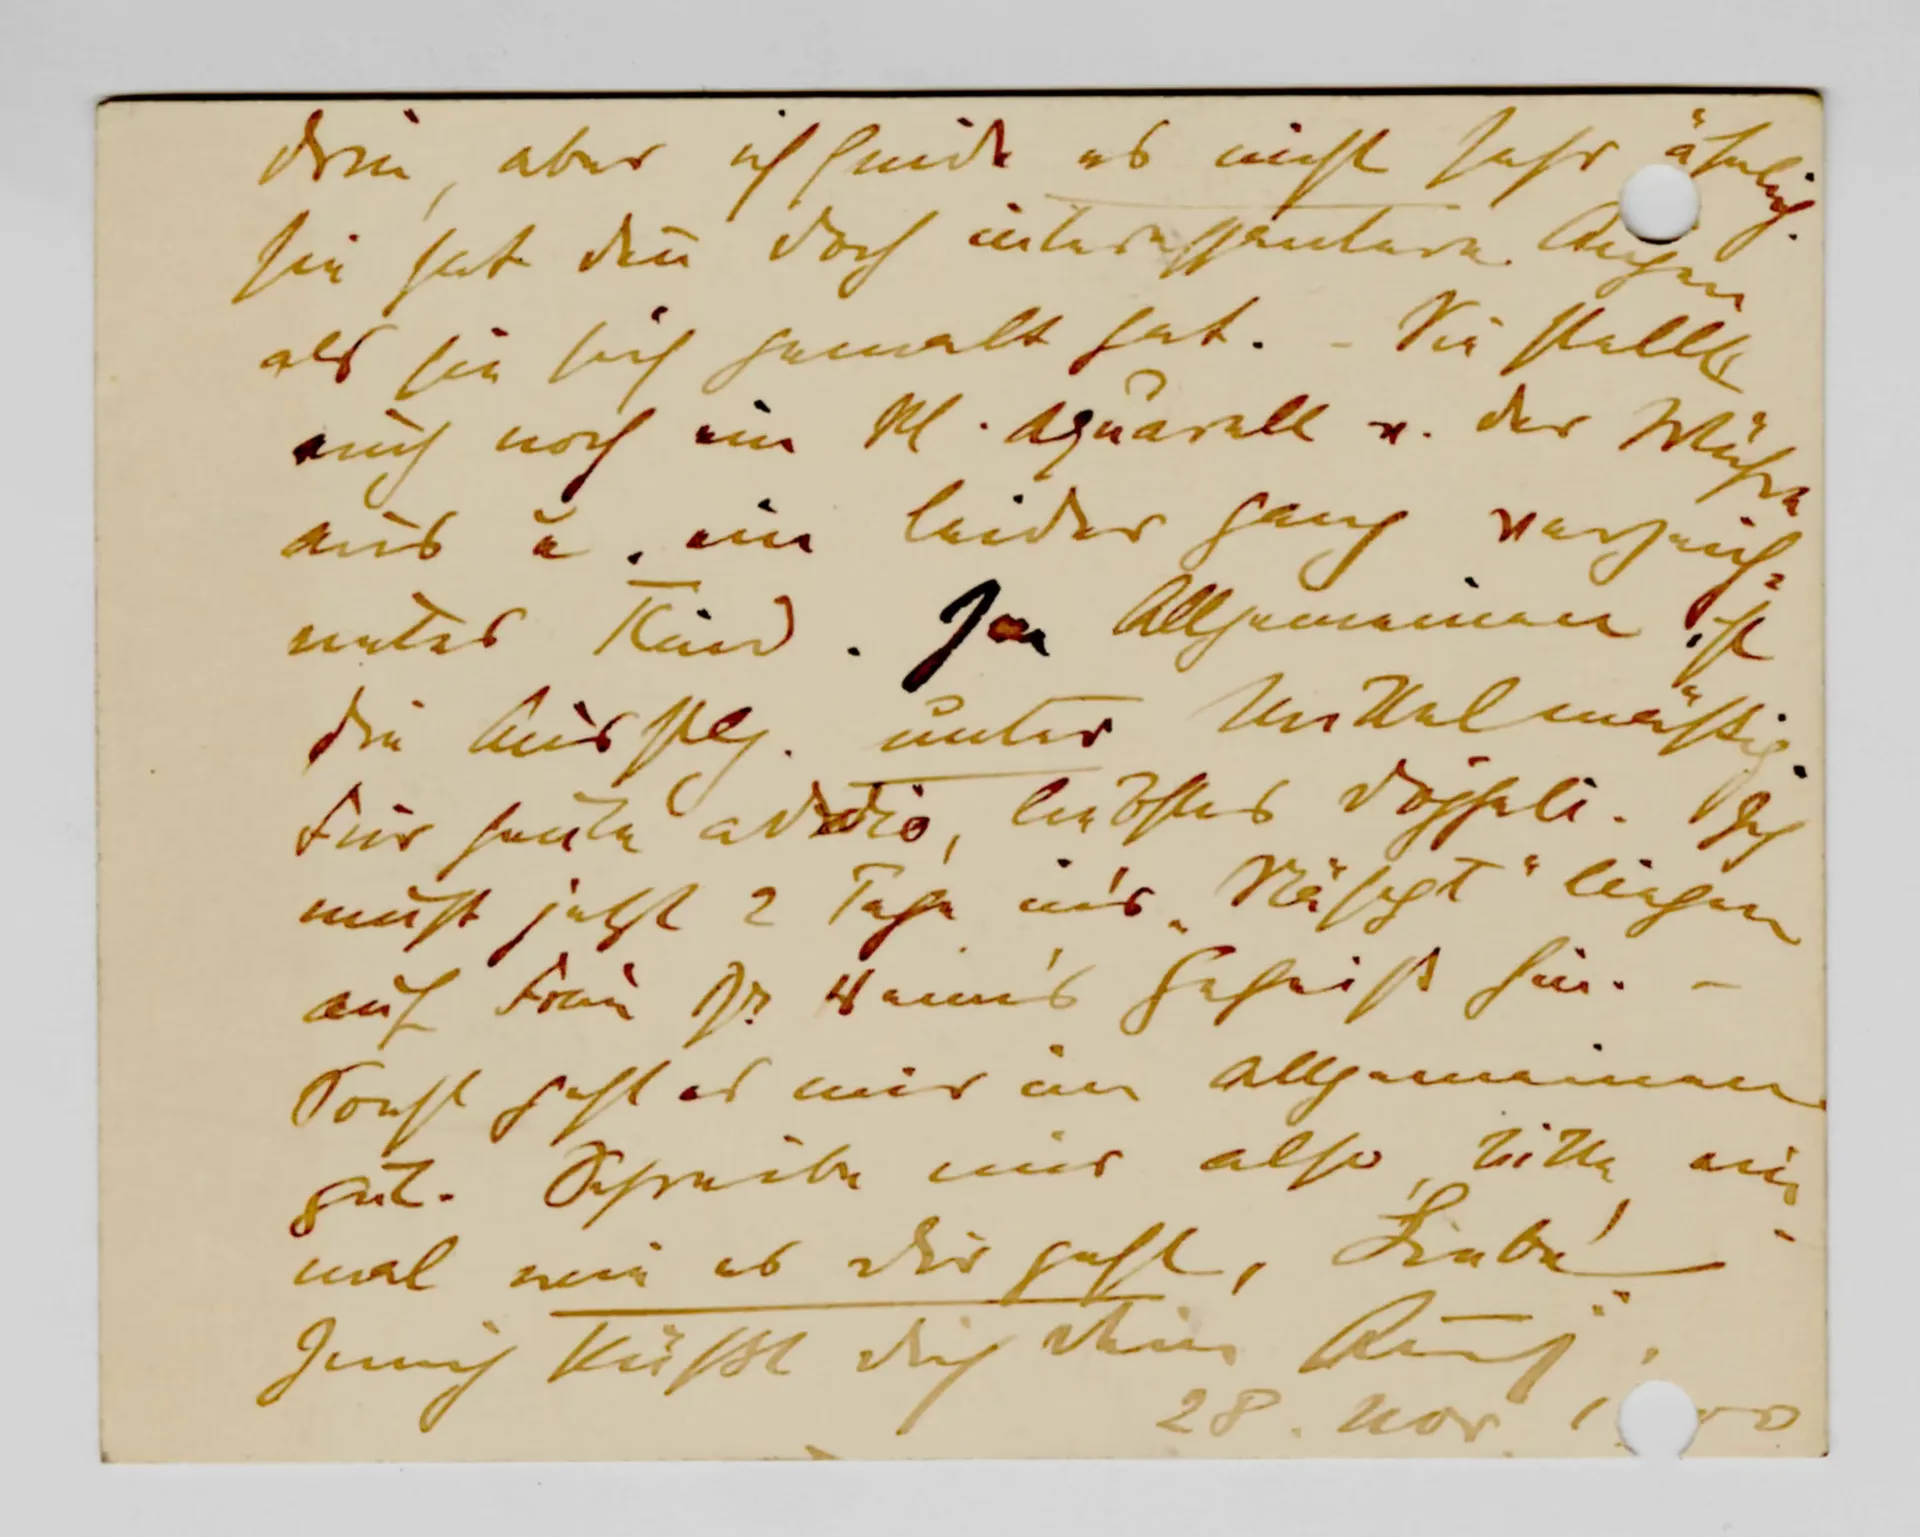 drin, aber ich finde es nicht sehr ähnlich.
Sie hat den̄ doch interessantere Augen
als sie sich gemalt hat. - Sie stellt
auch noch ein kl. Aquarell v. der
aus u. ein leider ganz verzeich-
netes Kind. Im Allgemeinen ist
die Ausstlg. unter Mittelmässig.
Für heute addio, liebstes Dösseli. Ich
muss jetzt 2 Tage in's „Näschgt“ liegen
auf Frau Dr. Geheiss hin. -
Sonst geht es mir im Allgemeinen
gut. Schreibe mir also, bitte, ein-
mal wie es dir geht, Liebe!
Innig küsst dich dein
28. Nov. 1 00